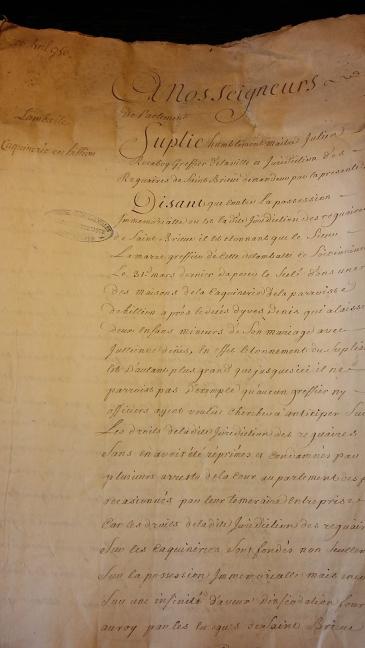 avril 1750
Lamballe
Caquinerie en hillion
A Nosseigneurs
de Parlement
Suplie humblement maitre Julien
Greffier de la ville et Juridiction des
Regaires de Saint Brieuc demandeur par la presente
Disant que contre la possession
Immemorialle ou est la dite Juridiction des regaires
de Saint Brieuc il est etonnant que le Sieur
Lamarre greffier de celle de Lamballe
Le 31e mars dernier apposé le Scelé dans une
des maisons de la Caquinerie de la parroisse
d'hillion apres le decés d'yves Denis qui a laissé
deux enfans mineurs de Son mariage avec
Jullienne denis, En effet l'etonnement du Supliant
est d'autant plus grand que jusques ici il ne
parroist pas d'exemple qu'aucun greffier ny
officiers ayent voulus chercher a anticiper Sur
Les droits de la dite Juridiction des regaires
Sans en avoir été réprimés et Condamnés par
plusieurs arrests de la Cour au parlement des
occasionnés par leur temeraire entreprise
Car les droits de la dite Juridiction des regaires
Sur les Caquineries Sont fondés non Seullement
Sur la possession Immemorialle mais encore
Sur une infinité d'aveux d'infeodation
au roy par les Evesques de Saint Brieuc